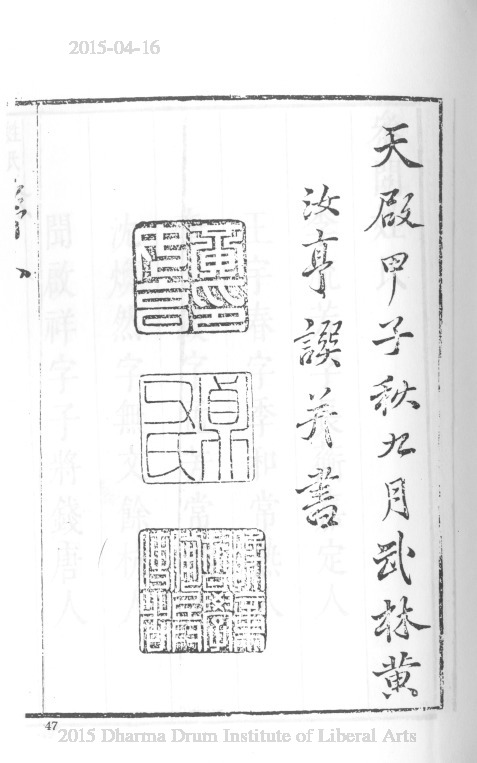 2015-04-16
天啟甲子秋九月武林黃
汝亨譔并書
貞父氏
47
2015 Dharma Drum Institute of Liberal Arts